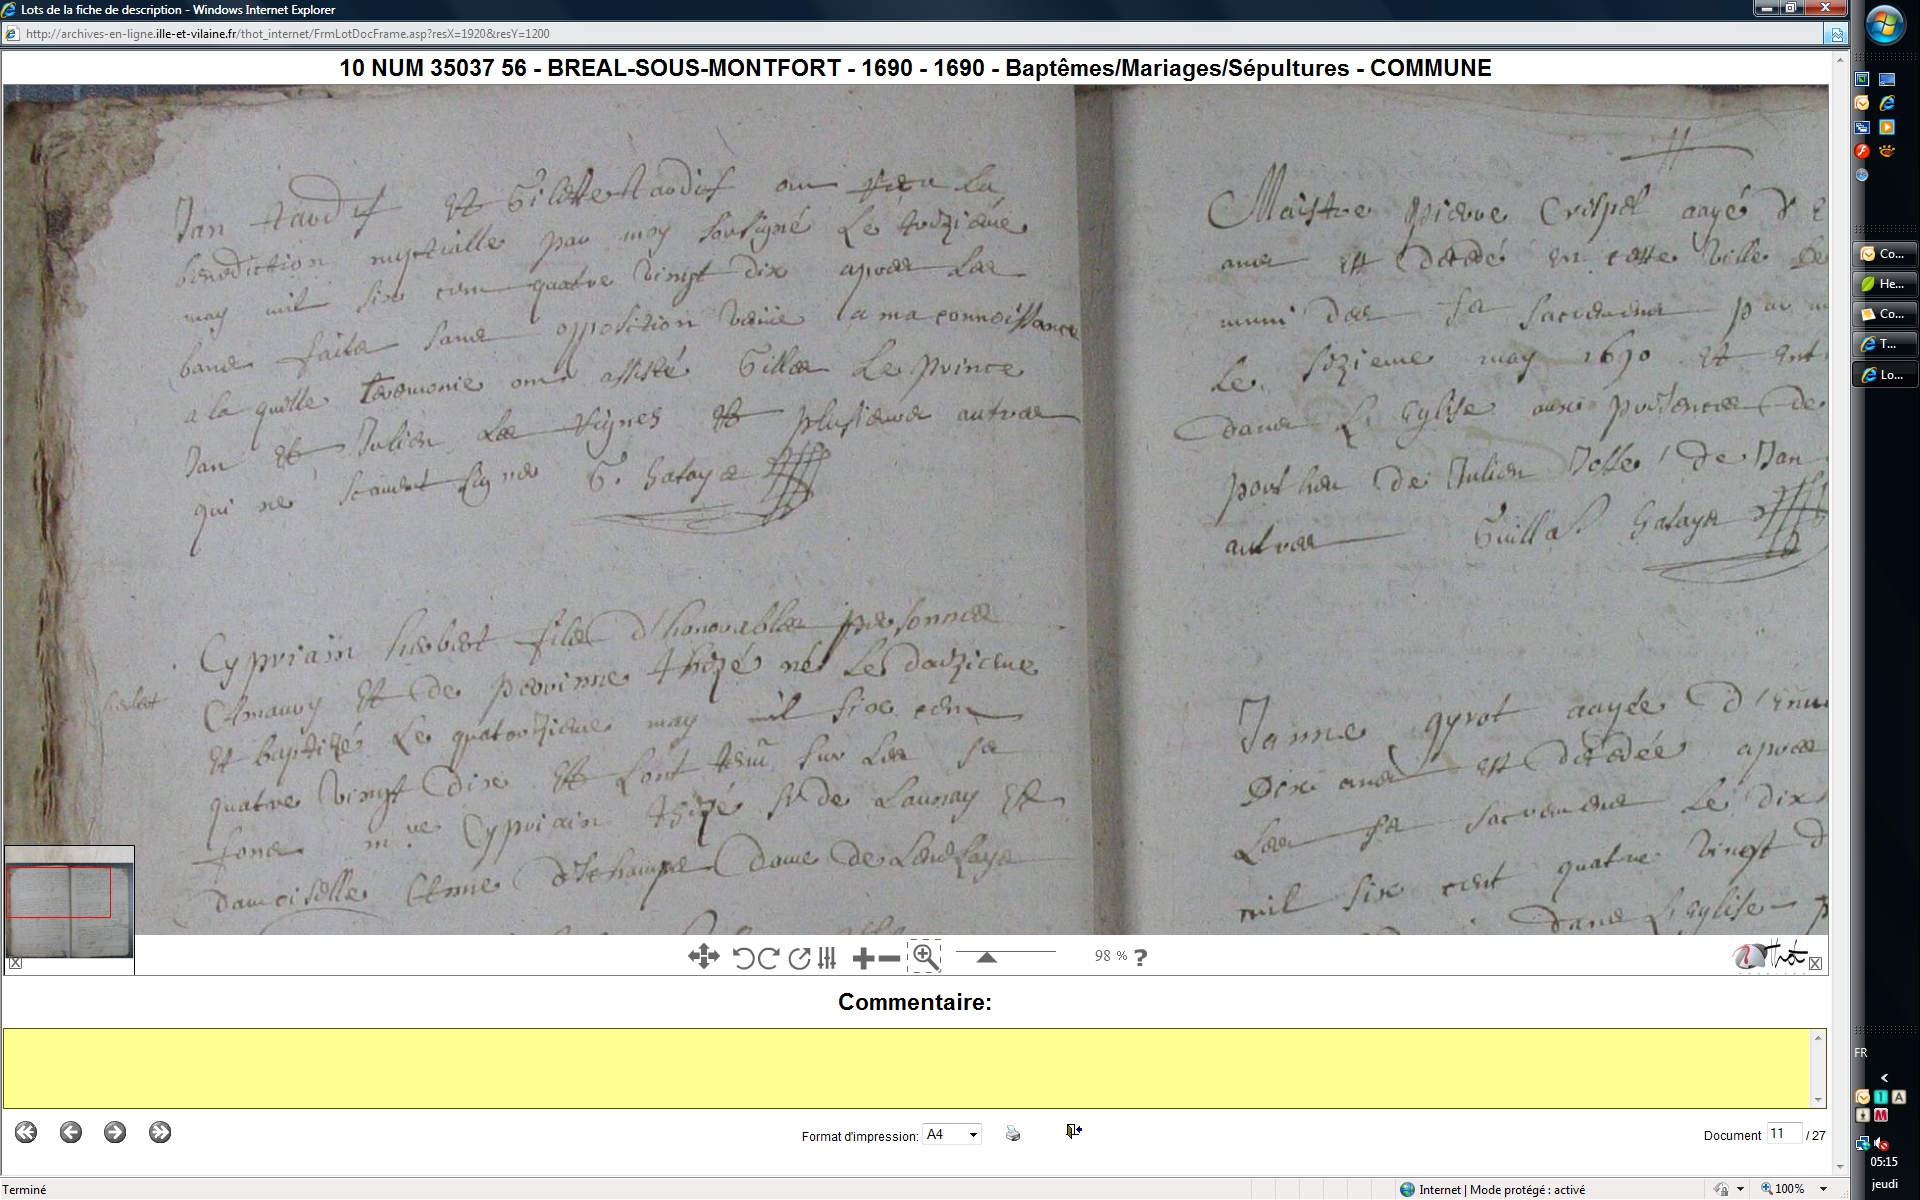 Lots de la fiche de description - Windows Internet Explorer
http://archives-en-ligne.ille-et-vilaine.fr/thot_internet/FrmLotDocFrame.asp?resX=1920&resY=1200
10 NUM 35037 56 - BREAL-SOUS-MONTFORT - 1690 - 1690 - Baptêmes/Mariages/Sépultures - COMMUNE
Jan et ont la
benediction nuptialle par moy soubsigné le
may mil six cent quatre vingt dix apres les
bans faits sans opposition venüe a ma connoissance
a la quelle ceremonie ont assisté Gilles Le Prince
Jan et Julien Les Vignes et plusieurs autres
qui ne scavent signer G. Gataye
herbert
Cyprian herbert fils d'honorables personnes
Amaury et de perrinne thizé né le douzieme
et baptizé le quatorzieme may mil six cent
quatre vingt dix et l'ont tenu sur les st
fons m. Cyprian thizé sr de Launay et
damoiselle Anne dame de
Maistre pierre Crespel aagé d
ans est decedé en cette ville de
muni des st sacremens par m
le sizieme may 1690 et ent
dans l'Eglise aux presences de
de Julien de Jan
autres Guill Gataye
Janne gyrot aagée d'
Dix ans est decedée apres
les st sacremens le dix
mil six cent quatre vingt d
dans l'Eglise p
98 % ?
Thot
Commentaire:
Format d'impression: A4
Document 11 / 27
Terminé
Internet | Mode protégé : activé
100%
Co...
He...
Co...
T...
Lo...
FR
05:15
jeudi